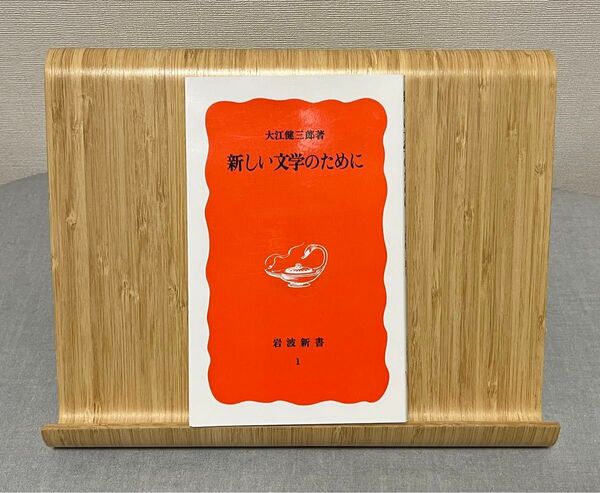 大江健三郎著
新しい文学のために
岩波新書
1